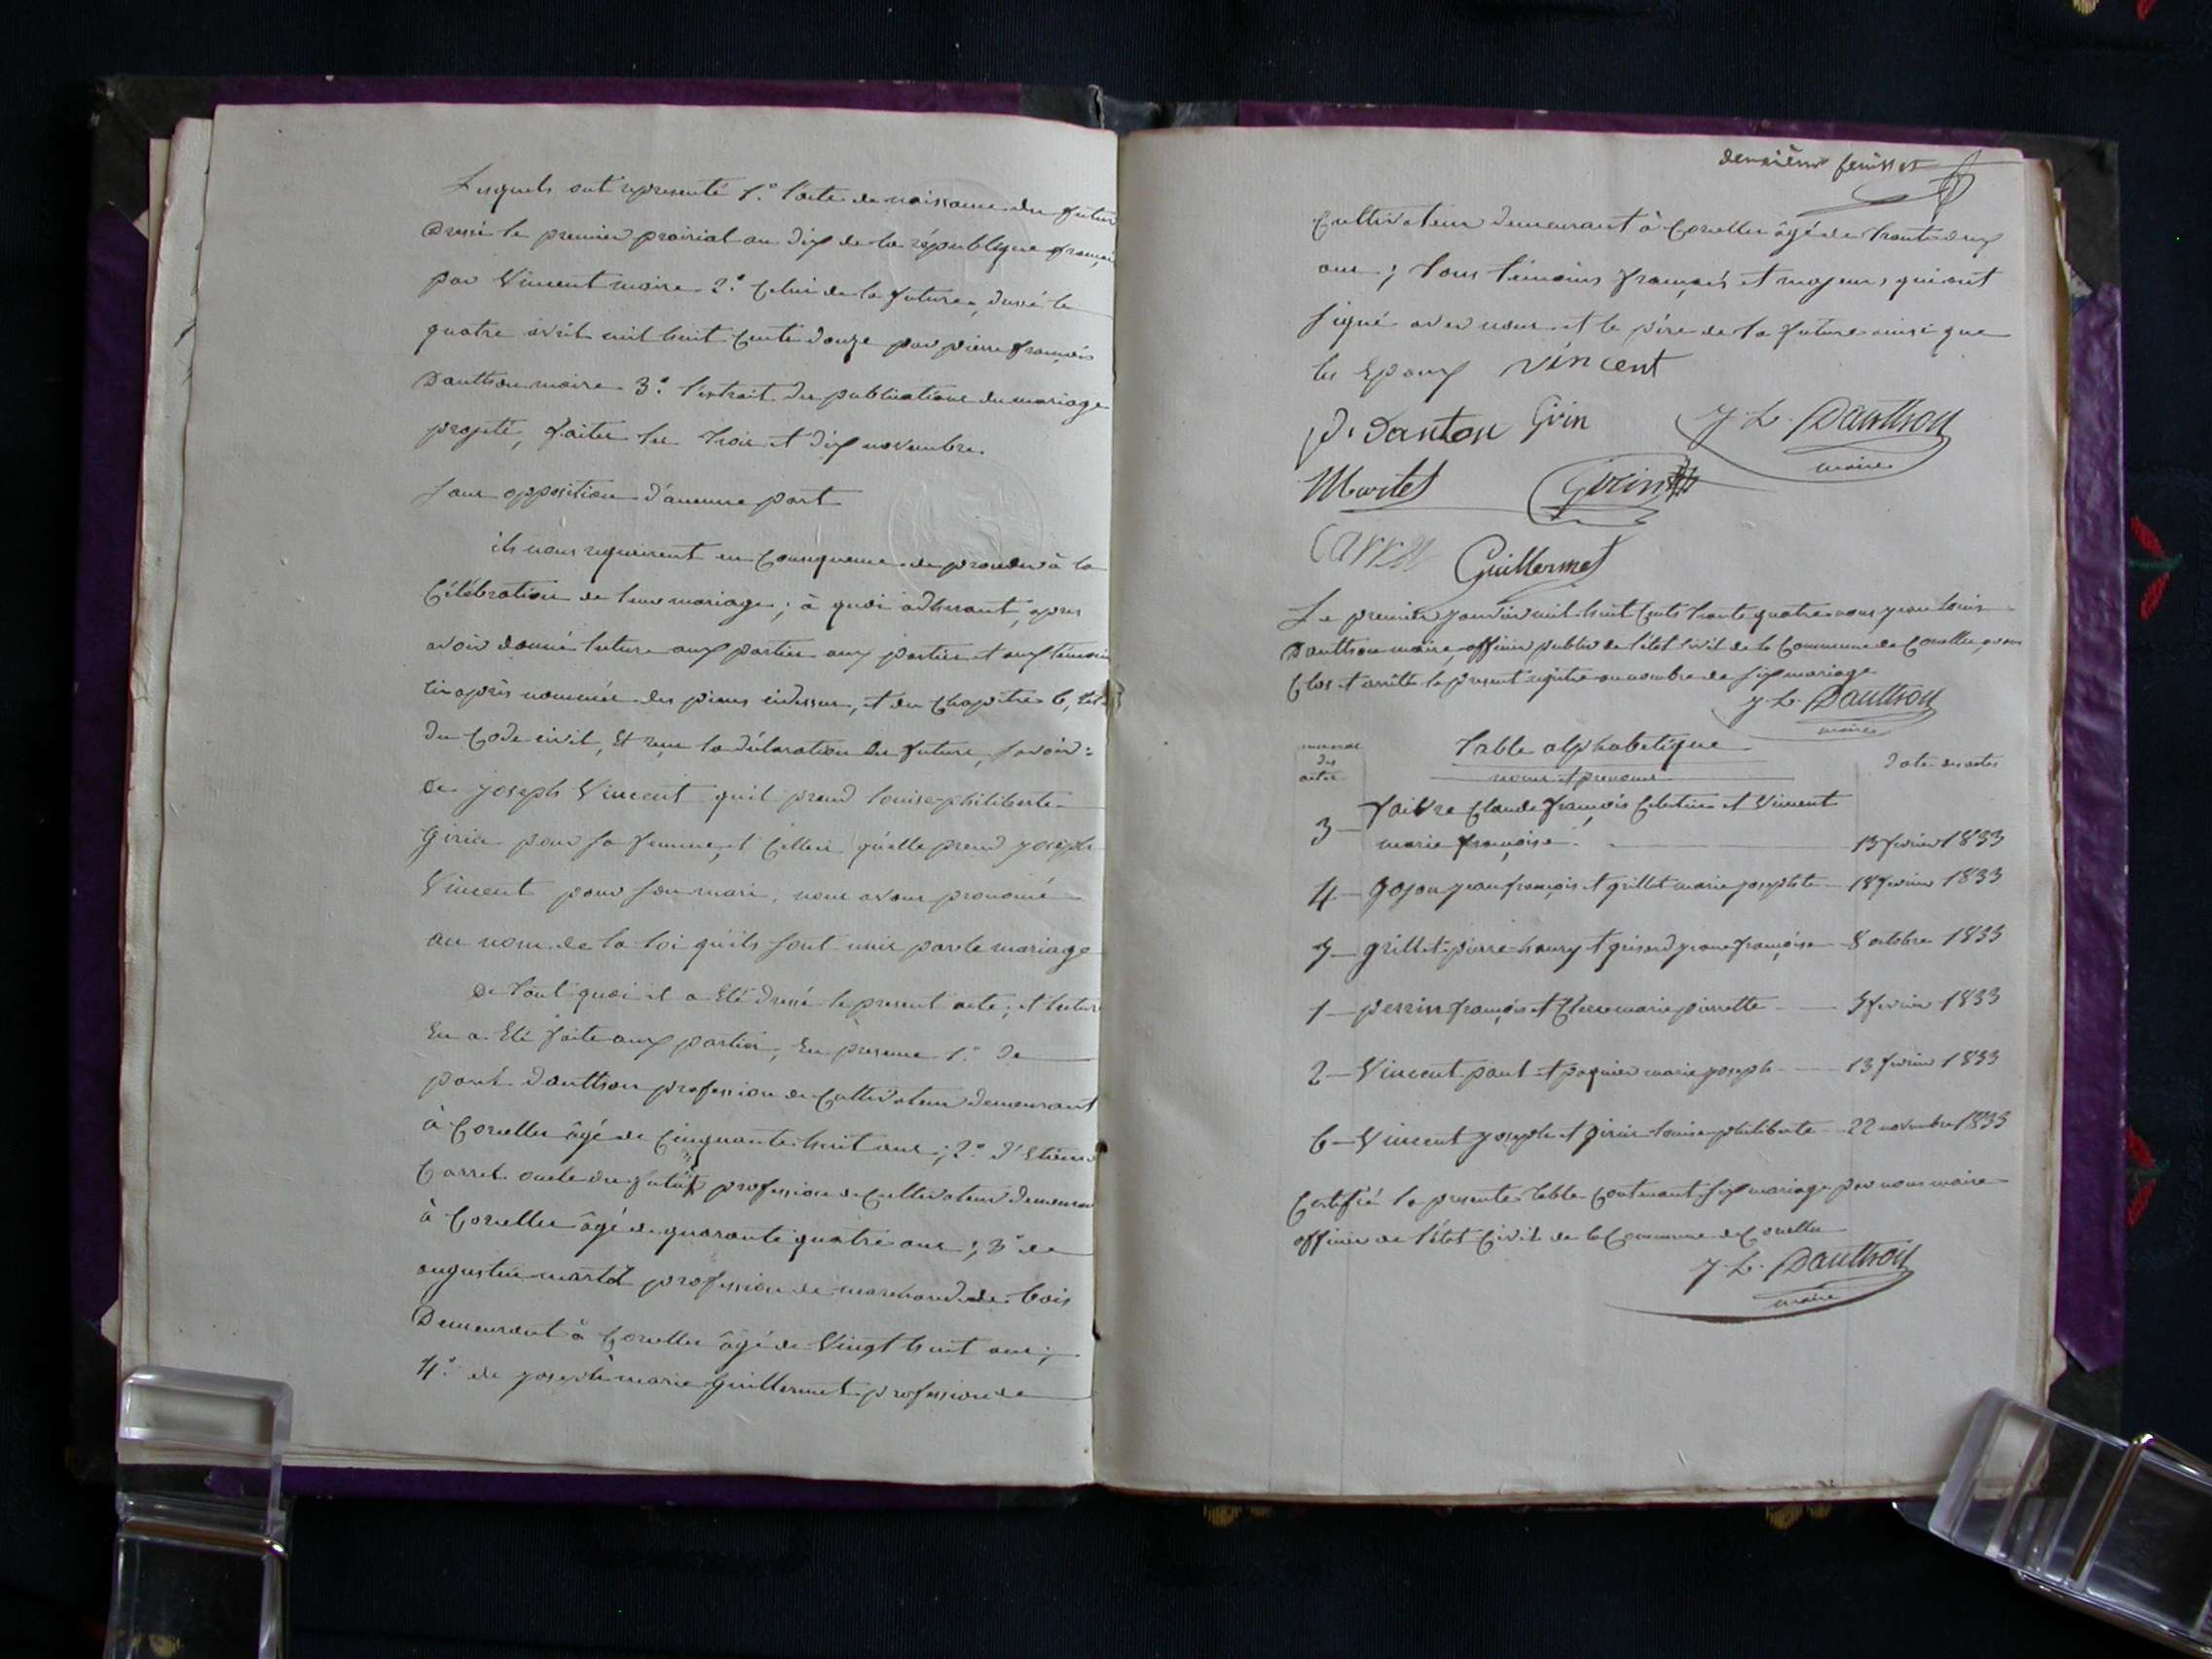 Lesquels ont representé 1.° l'acte de naissance du futur
Dressé le premier prairial an dix de la république francai
par Vincent maire 2.° Celui de la future, dressé le
quatre avril mil huit Cents douze par pierre françois
Dauthon maire 3.° l'extrait des publications du mariage
projeté, faites les trois et dix novembre
sans opposition d'aucune part
ils nous requierent en Consequence de proceder à la
Célébration de leur mariage; à quoi adherant, apres
avoir donné lecture aux parties aux parties et aux témoins
ci après nommés des pieces cidessus, et du Chapitre 6,
du Code civil, Et reçu la déclaration des futurs, savoir:
De joseph Vincent qu'il prend louise philiberte
Girin pour sa femme, et Celleci qu'elle prend joseph
Vincent pour son mari, nous avons prononcé
au nom de la loi qu'ils sont unis par le mariage
De tout quoi il a Eté dressé le present acte, et lecture
En a Eté faite aux parties, En presence 1.° de
paul dauthon profession de Cultivateur demeurant
à Corcelles âgé de Cinquante huit ans; 2.° d'Etienne
Carrel oncle du futur profession de Cultivateur demeurant
à Corcelles âgé de quarante quatre ans; 3° de
augustin martel profession de marchand de bois
Demeurant à Corcelles âgé de Vingt huit ans;
4.° de joseph marie guillermet profession de
deuxième feuillet
Cultivateur demeurant à Corcelles âgé de trente deux
ans; tous témoins français et majeurs qui ont
signé avec nous et le père de la future ainsi que
les Epoux vincent
p. Danton Girin J. L. Dauthon
maire
Martel Girin
Carrel Guillermet
Le premier janvier mil huit Cents trente quatre nous jean louis
Dauthon maire, officier public de l'état Civil de la Commune de Corcelles, avons
Clos et arrêté le present registre au nombre de six mariage
J. L. Dauthon
maire
des
actes
Table alphabetique
noms et prenoms
date des actes
3 — faivre Claude françois Celestin et Vincent
marie françoise 13 fevrier 1833
4 — gojon jean françois et grillet marie josephte — 18 fevrier 1833
5 — grillet pierre henry et grisard jeanne françoise — 8 octobre 1833
1 — perrin françois et marie pierrette — 5 fevrier 1833
2 — Vincent paul et paquier marie joseph — 13 fevrier 1833
6 — Vincent joseph et girin louise philiberte — 22 novembre 1833
Certifié la presente table Contenant six mariage par nous maire
officier de l'état Civil de la Commune de Corcelles
J. L. Dauthon
maire